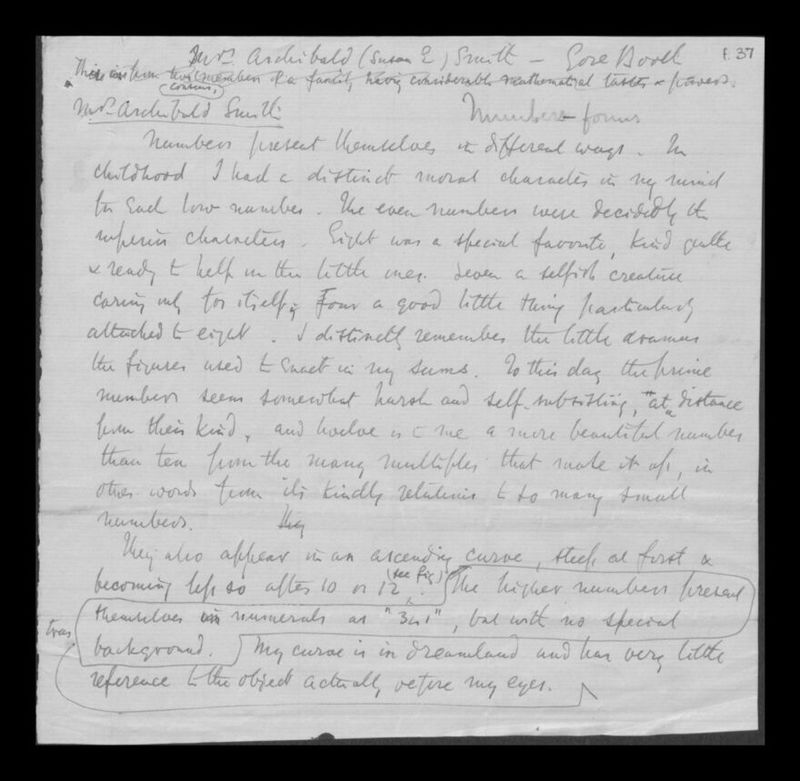 Mrs Archibald (Susan E) Smith — Gore Booth
f. 37
This is from two members of a family having considerable mathematical tastes & powers.
(cousins,)
Mrs Archibald Smith
Numbers forms
Numbers present themselves in different ways. In
childhood I had a distinct moral character in my mind
for each low number. The even numbers were decidedly the
superior characters. Eight was a special favorite, kind gentle
& ready to help on the little ones. Seven a selfish creature
caring only for itself; Four a good little thing particularly
attached to eight. I distinctly remember the little dramas
the figures used to enact in my sums. To this day the prime
numbers seem somewhat harsh and self-subsisting, "at distance
from their kind", and twelve is to me a more beautiful number
than ten from the many multiples that make it up, in
other words from its kindly relations to so many small
numbers. They
They also appear in an ascending curve, steep at first &
becoming less so after 10 or 12. (see fig) The higher numbers present
themselves in numerals as "341", but with no special
trans
background. My curve is in dreamland and has very little
reference to the object actually before my eyes.